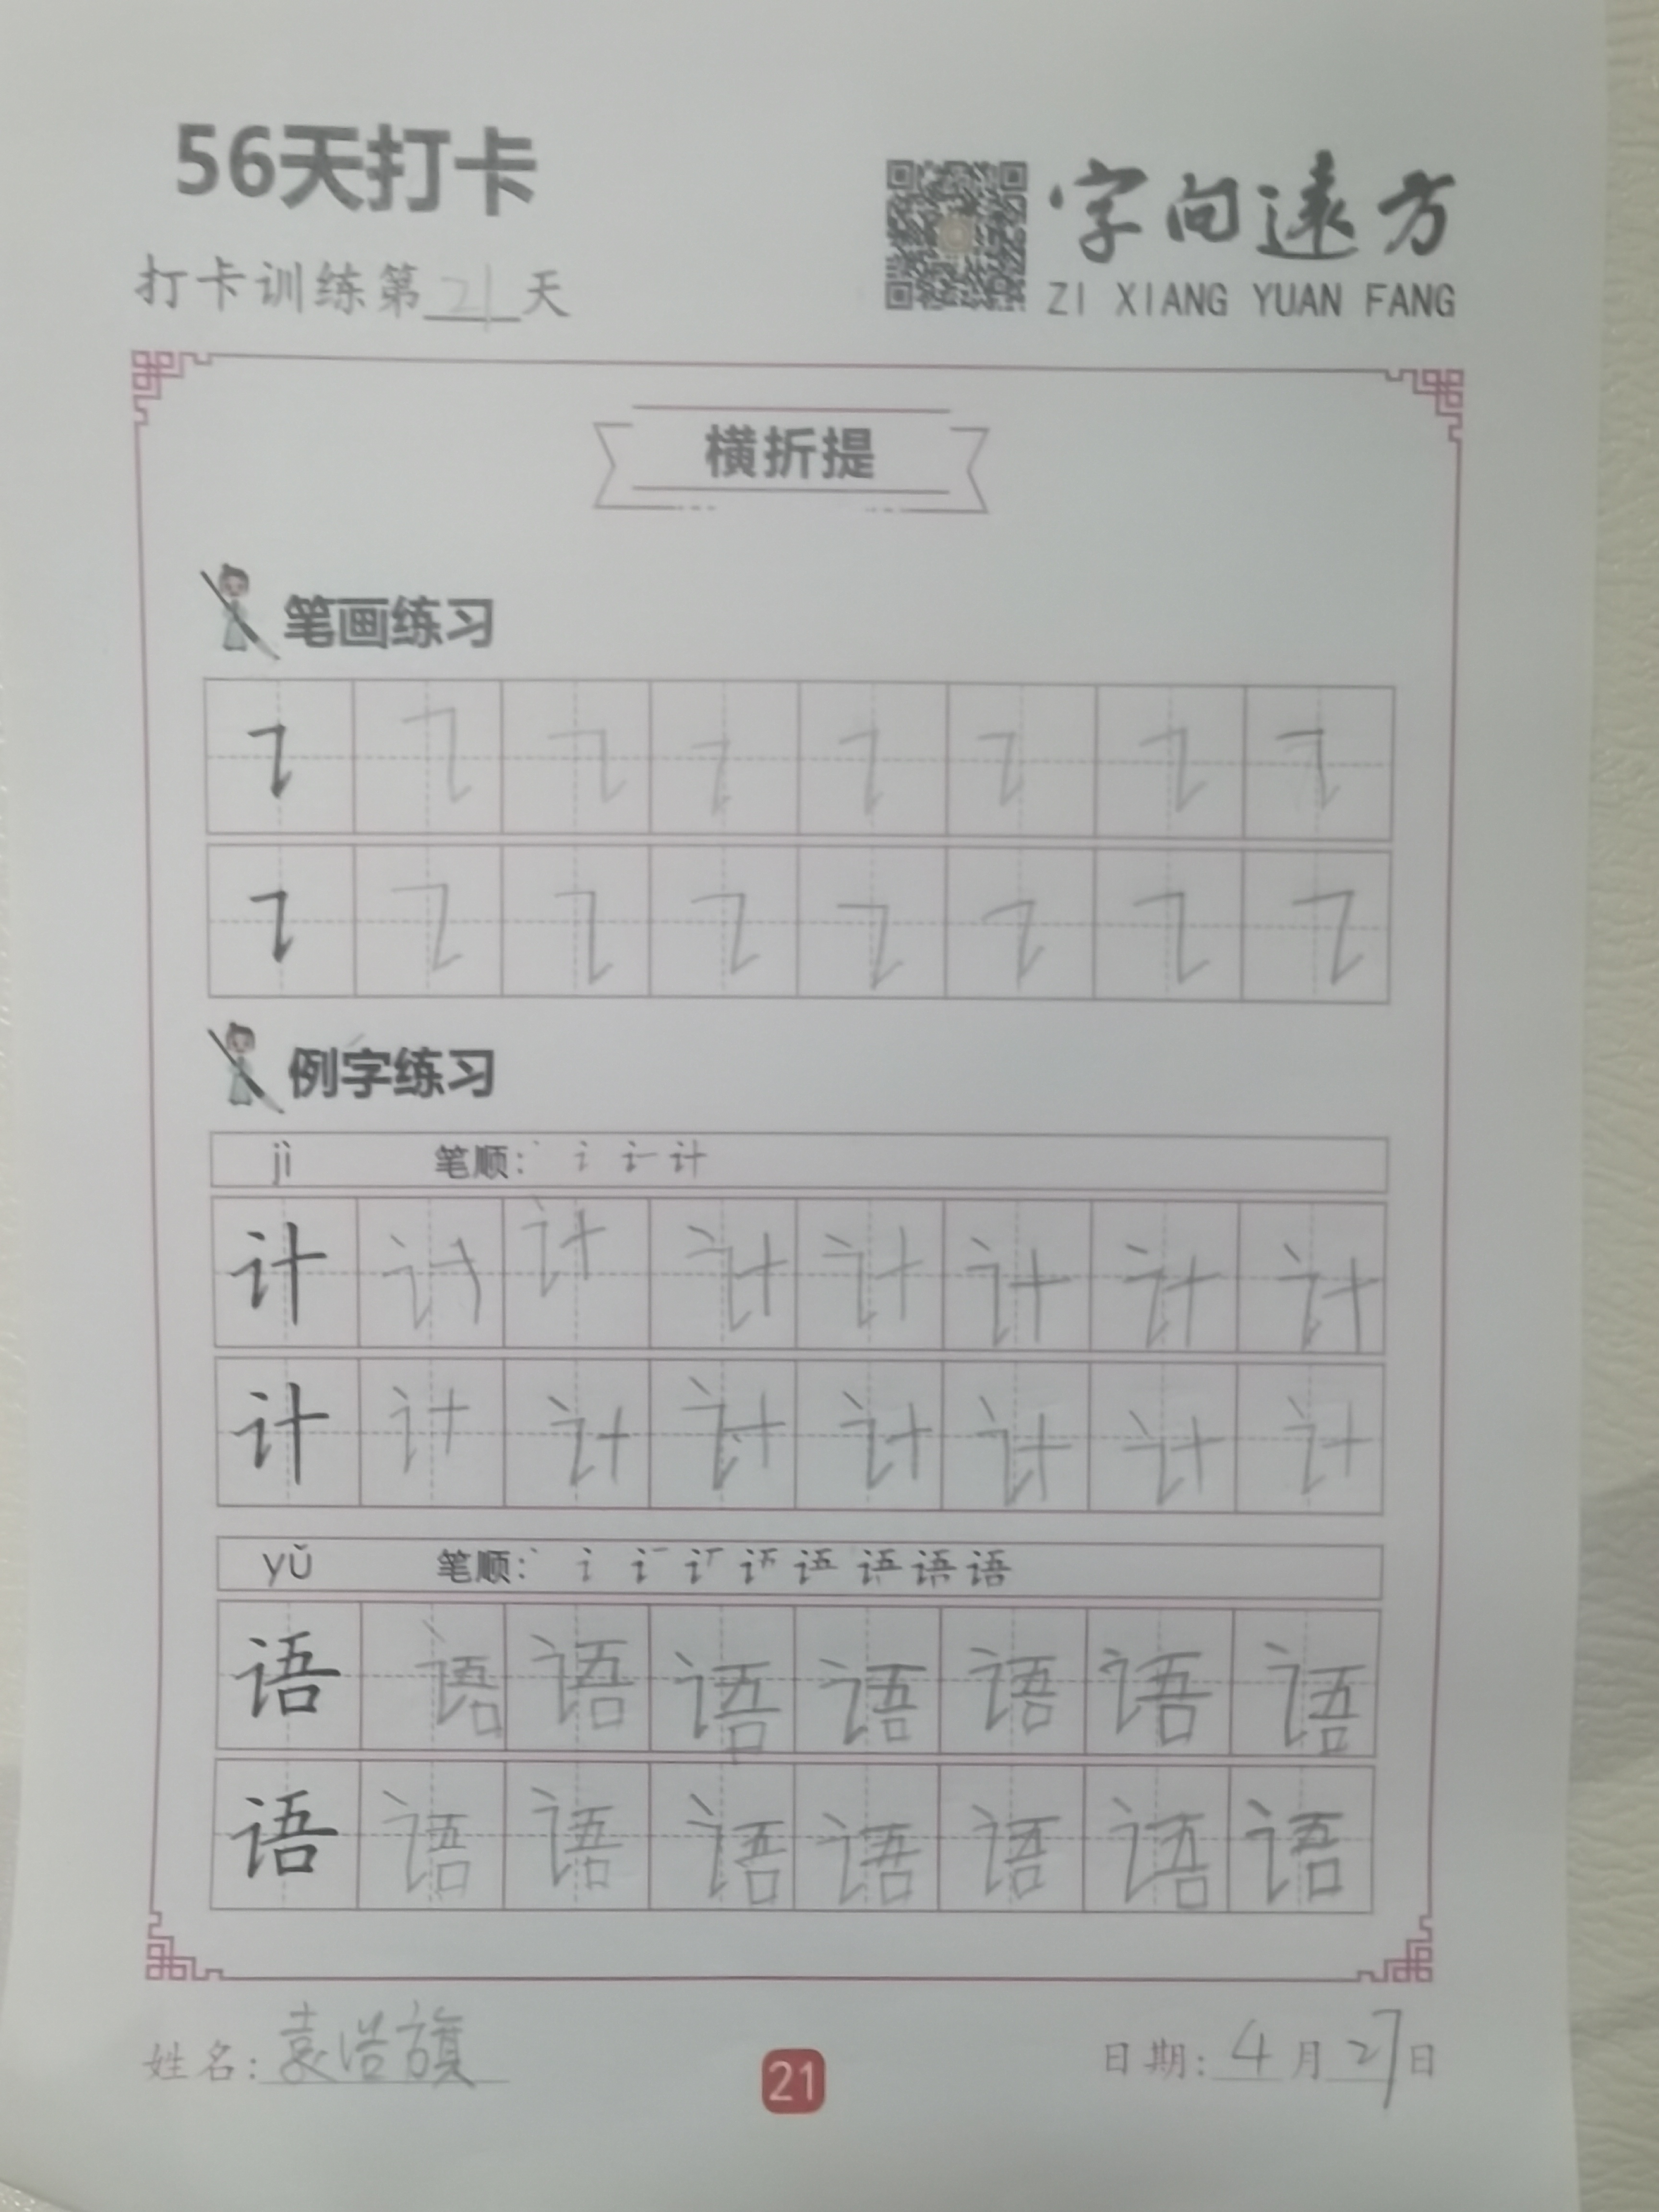 56天打卡
字向遠方
ZI XIANG YUAN FANG
打卡训练第21天
横折提
笔画练习
㇊ ㇊ ㇊ ㇊ ㇊ ㇊ ㇊ ㇊
㇊ ㇊ ㇊ ㇊ ㇊ ㇊ ㇊ ㇊
例字练习
jì 笔顺:
计 计 计 计 计 计 计 计
计 计 计 计 计 计 计 计
yǔ 笔顺:
语 语 语 语 语 语 语 语
语 语 语 语 语 语 语 语
姓名: 袁浩旗
21
日期: 4月27日